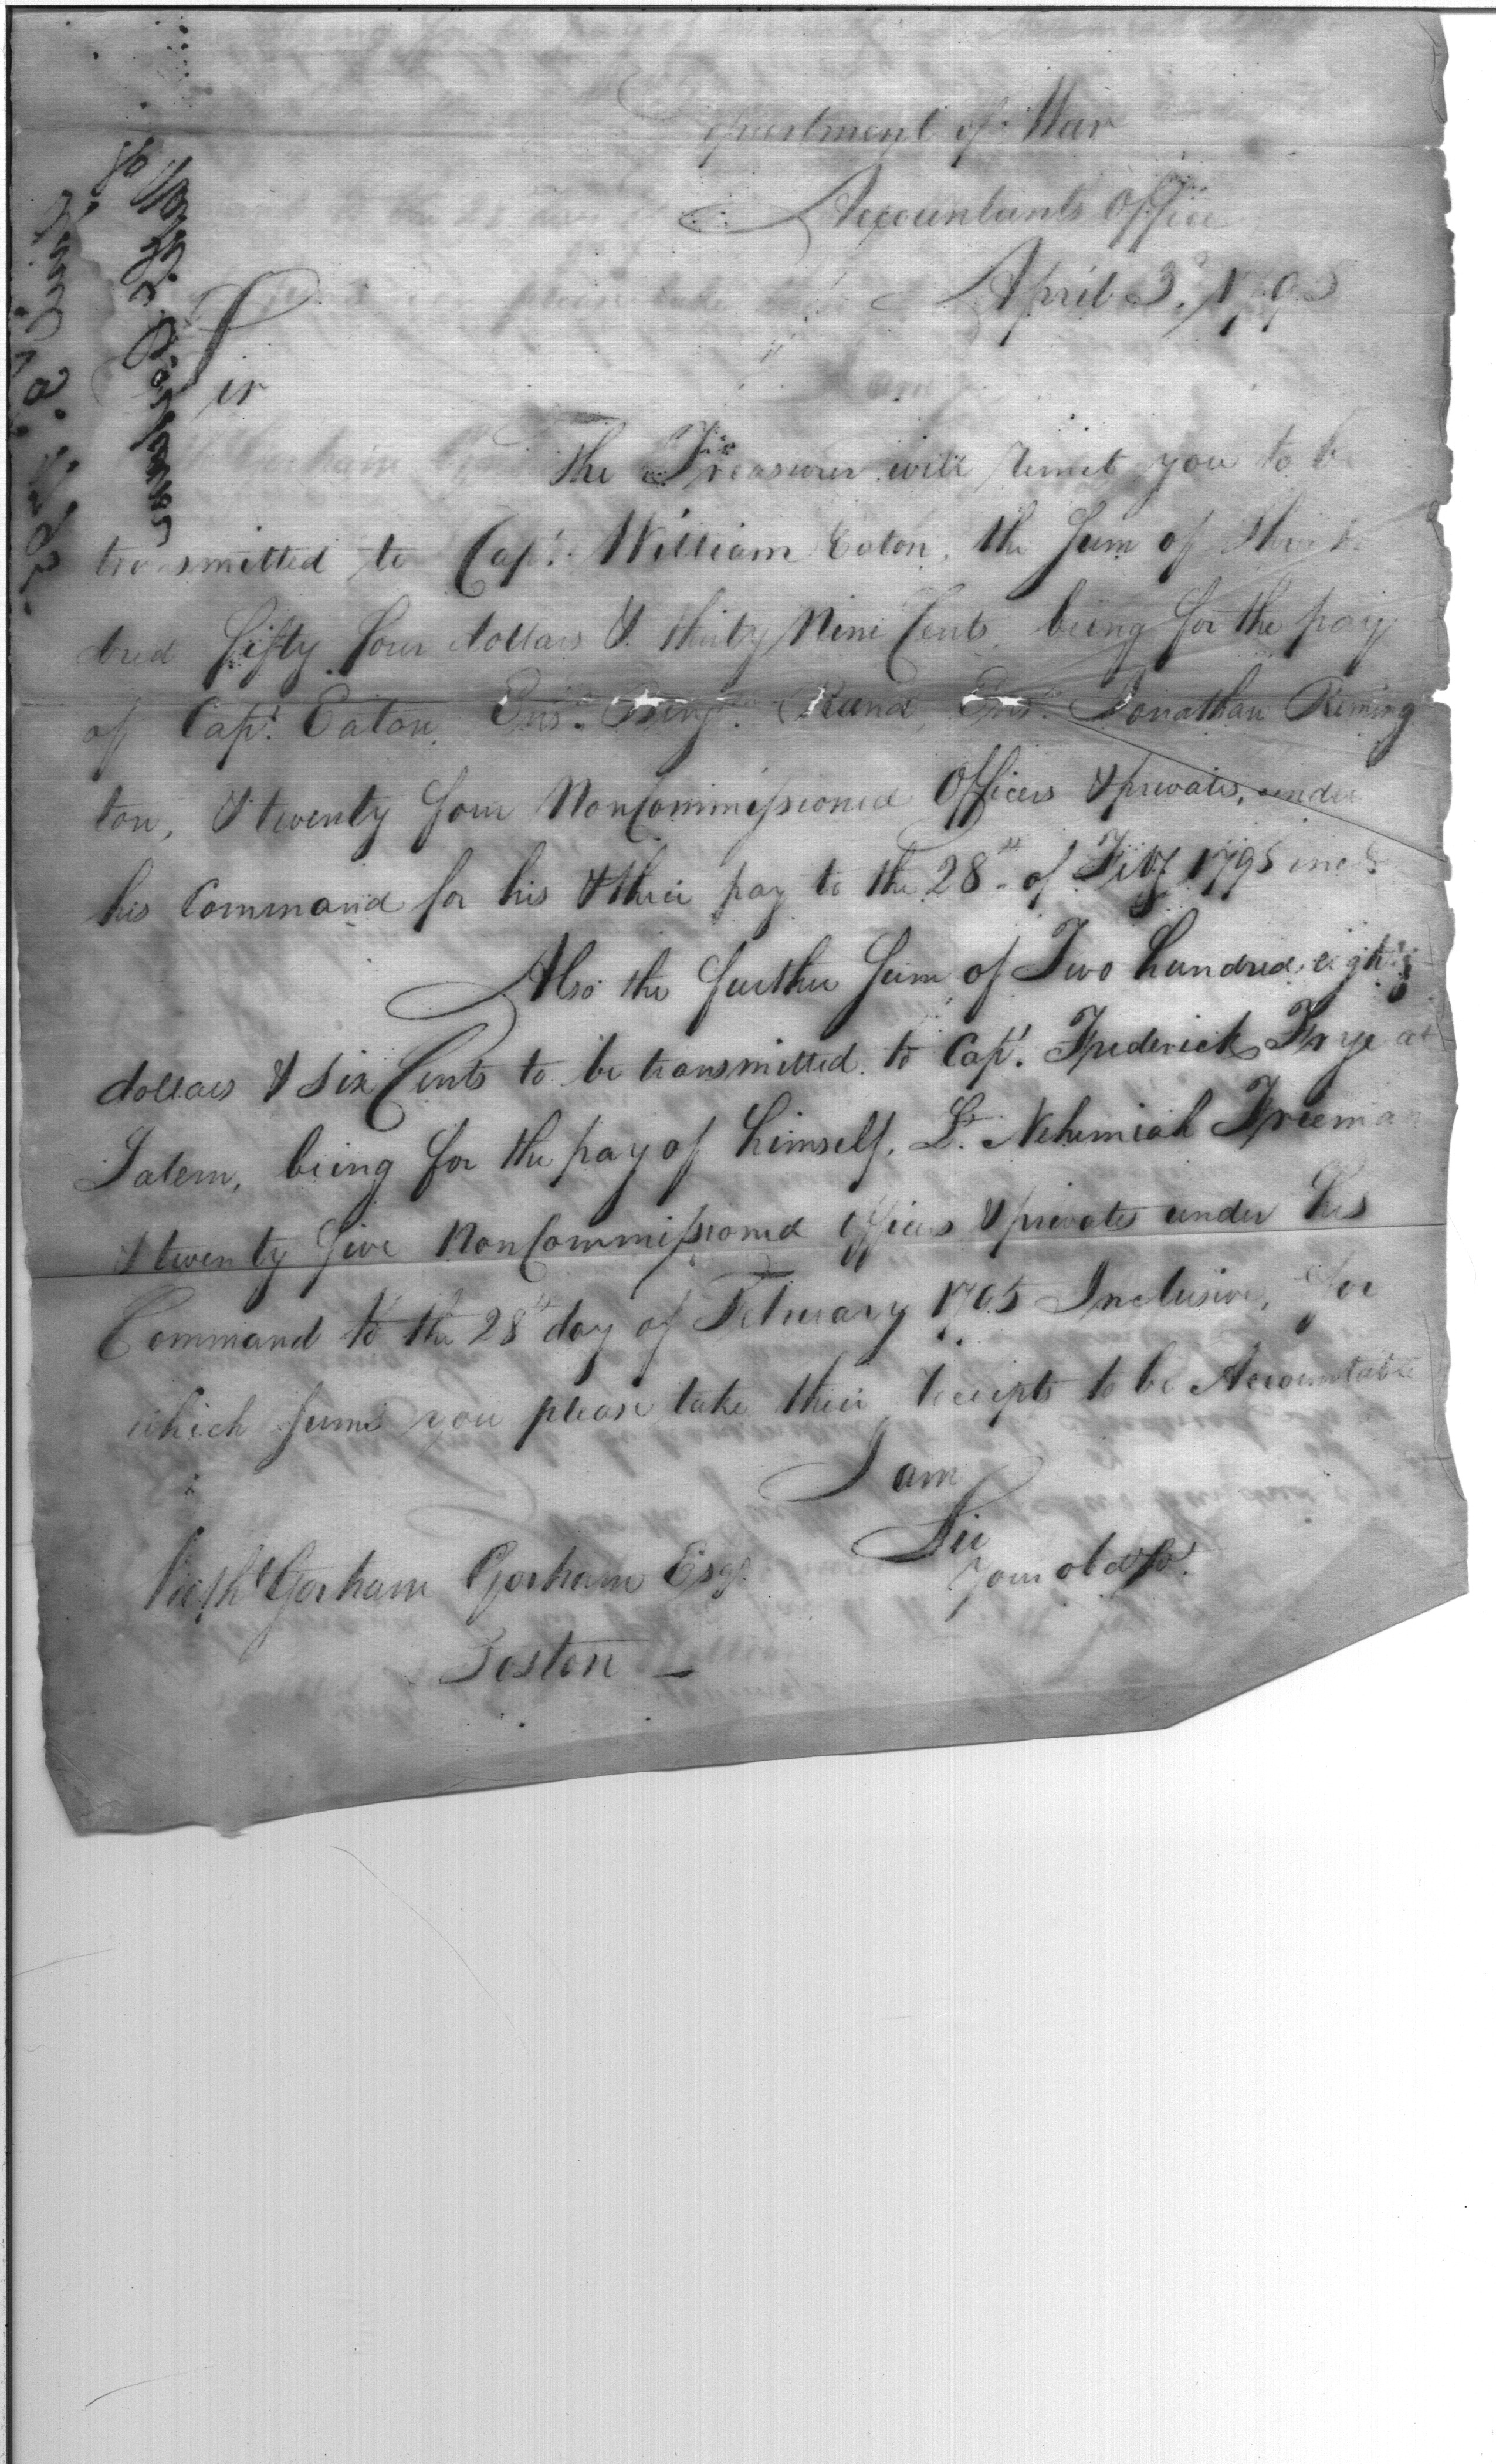 Department of War
Accountants Office
April 3d. 1795
Sir
The Treasurer will remit you to be
transmitted to Capt. William Eaton, the Sum of
dred fifty four dollars & thirty Nine Cents, being for the pay
of Capt. Eaton, Ens. Benj. Rand, Ens. Jonathan Reming
ton, & twenty four NonCommissioned Officers & privates, under
his Command for his & their pay to the 28th of Feby 1795 incl
Also the further Sum of Two hundred eighty
dollars & Six Cents to be transmitted to Capt. Frederick Frye at
Salem, being for the pay of himself, Lt. Nehemiah Freeman
& twenty five NonCommissioned officers & privates under his
Command to the 28th day of February 1795 Inclusive, for
which sums you please take their receipts to be Accountable
I am
Sir
Your obd Sr.
Nathl Gorham Gorham Esqr.
Boston —